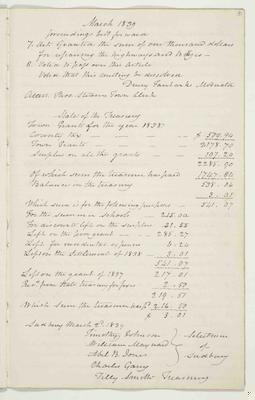 March 1839
proceedings bro't forward
7. Art. Granted the sum of one thousand dollars
for repairing the highways and bridges
8. Voted to pass over this article
Voted that this meeting be dissolved
Drury Fairbanks Moderator
Attest. Town Clerk
State of the Treasury
Town Grants for the year 1838
County tax
Town Grants 2178.70
Surplus on all the grants 107.20
Of which sum the treasurer has paid
Balance in the treasury 538.06
3.01
Which sum is for the following purposes 541.07
For the summer schools 225.00
For
Left on the 285.27
Left for incidental expenses 6.24
Left on the Settlement of 1838 3.01
541.07
Left on the grant of 1837 217.01
Rec'd from State treasury for 2.50
219.51
Which Sum the treasurer has pd 216.50
$ 3.01
Sudbury March 2d 1839
Timothy Johnson
William Maynard
Abel B. Jones
Charles Gerry
Selectmen
of
Sudbury
Tilly Smith Treasurer